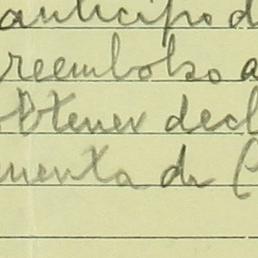 anticipo d
reembolso a
obtener decl
menta de C